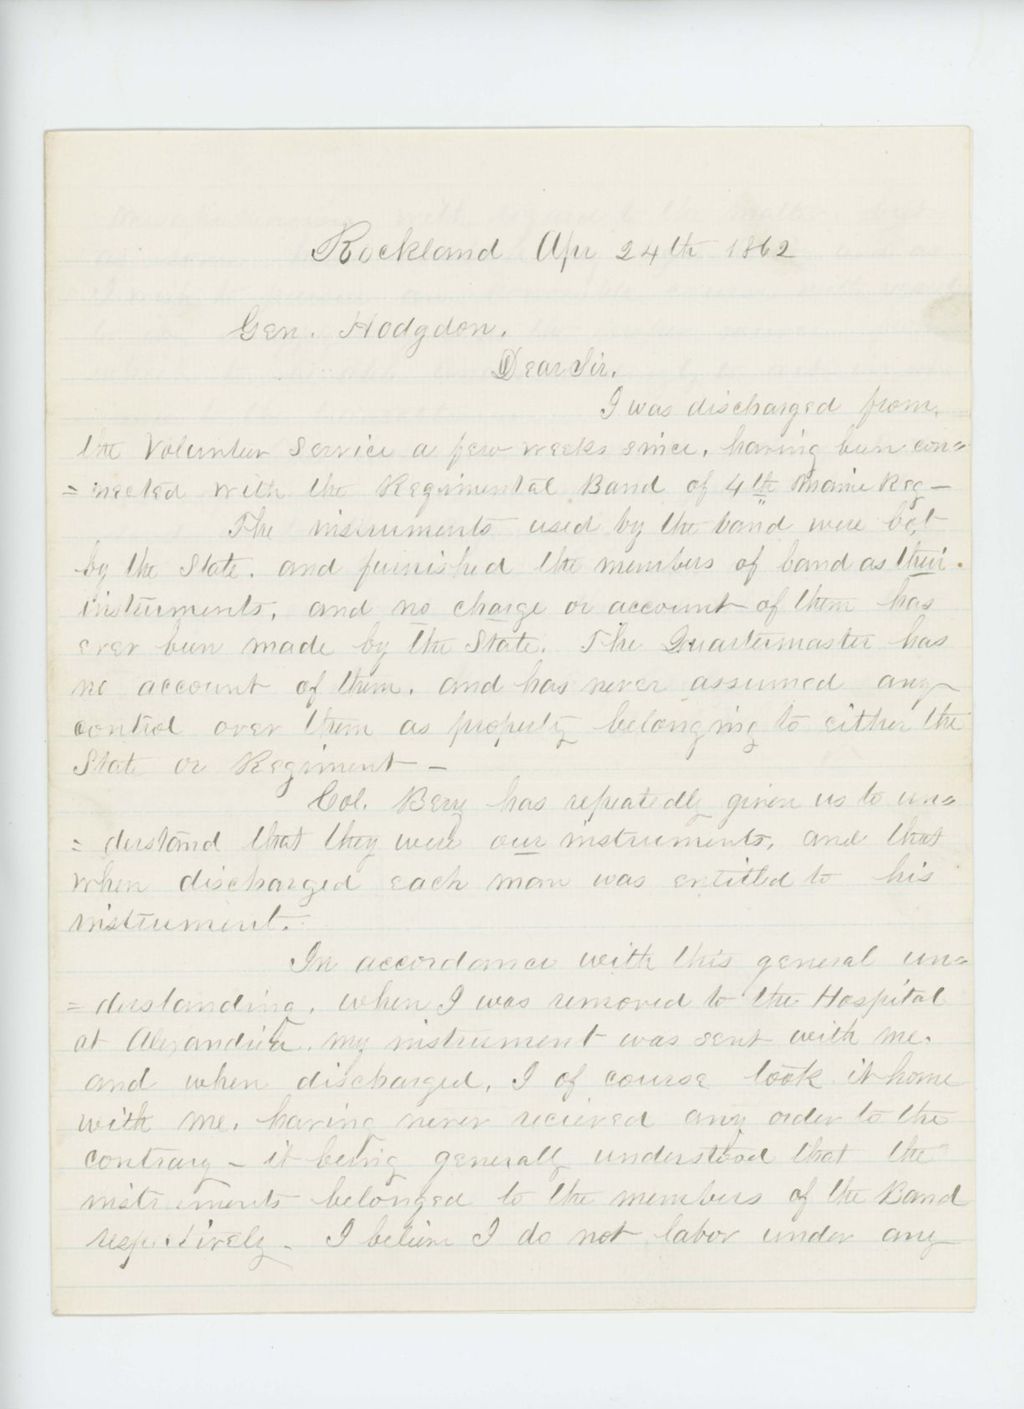 Rockland Apr 24th 1862
Gen. Hodgdon.
Dear Sir.
I was discharged from
the Volunteer Service a few weeks since, having been con=
=nected with the Regimental Band of 4th Maine Reg—
The instruments used by the band were bot
by the State. and furnished the members of band as their
instruments, and no charge or account of them has
ever been made by the State. The Quartermaster has
no account of them, and has never assumed any
control over them as property belonging to either the
State or Regiment —
Col. Berry has repeatedly given us to un=
=derstand that they were our instruments, and that
when discharged each man was entitled to his
instrument.
In accordance with this general un=
=derstanding, when I was removed to the Hospital
at Alexandria, my instrument was sent with me.
and when discharged, I of course took it home
with me, having never recieved any order to the
contrary – it being generally understood that the
instruments belonged to the members of the Band
respectively. I believe I do not labor under any